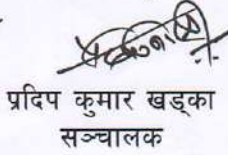 प्रदिप कुमार खड्का
सञ्चालक